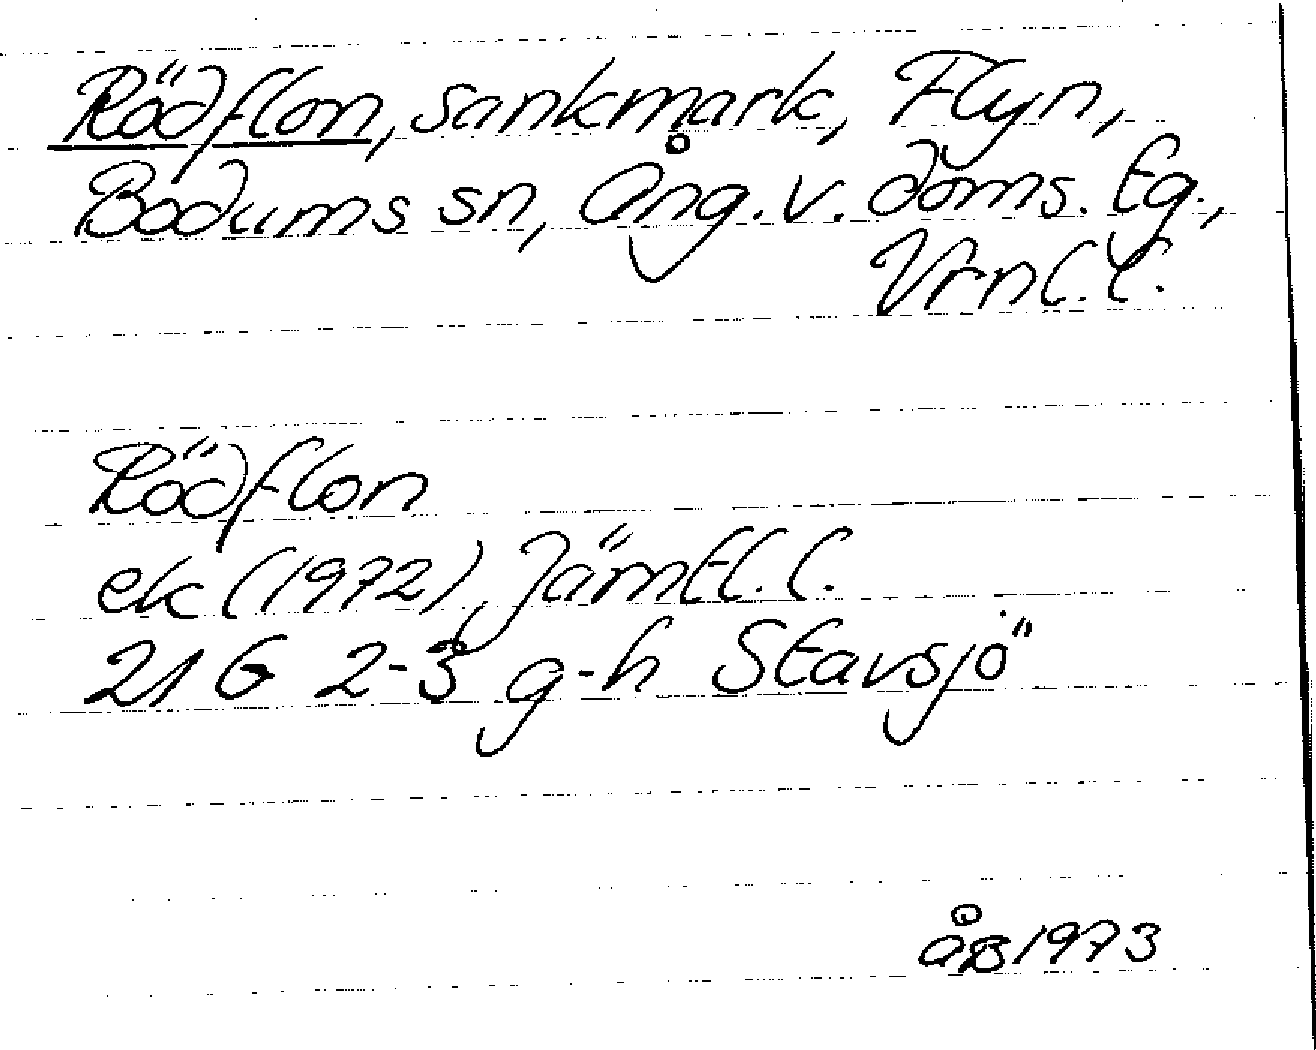 Rödflon, sankmark, Flyn,
Bodums sn, Ång. v. doms. tg.,
Vrnl. l.
Rödflon
ek (1972), Jämtl. l.
21 G 2-3 g-h Stavsjö
åB 1973